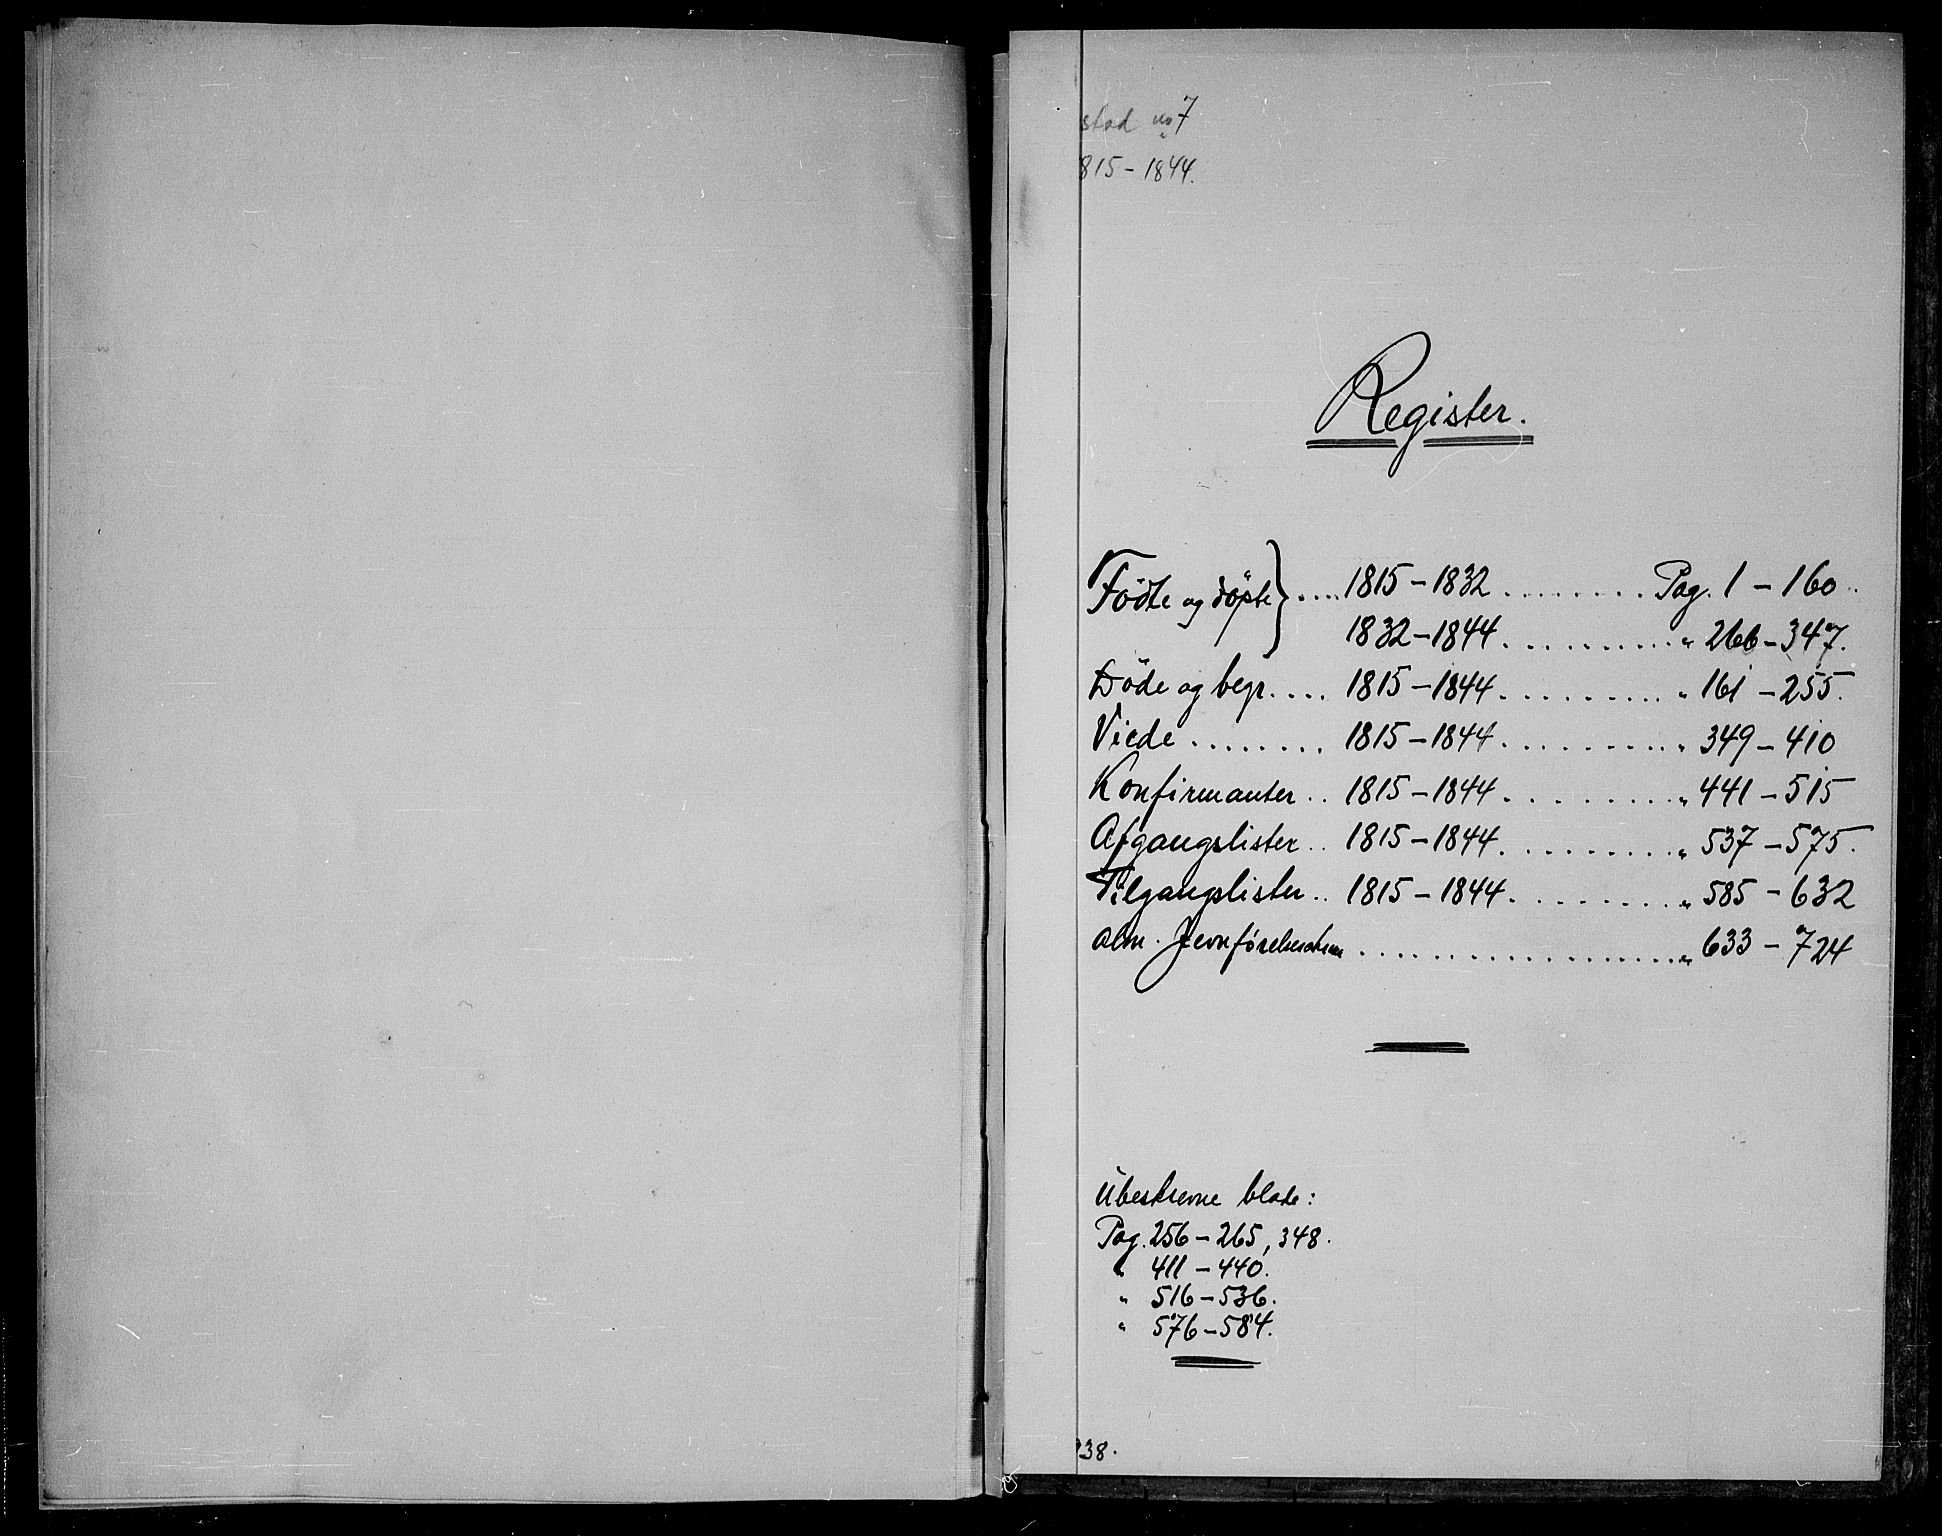 stad no 7
815 - 1844.
Register.
Födte og döpte} .... 1815 - 1832 ........ Pag. 1 - 160 ..
1832 - 1844 .......... " 266 - 347.
Döde og begr. ... 1815 - 1844 .......... " 161 - 255.
Viede ........ 1815 - 1844 .......... " 349 - 410
Konfirmanter .. 1815 - 1844 .......... " 441 - 515
Afgangslister .. 1815 - 1844 .......... " 537 - 575.
Tilgangslister .. 1815 - 1844 .......... " 585 - 632
Alm. ................... " 633 - 724
Ubeskrevne blade:
Pag. 256 - 265, 348.
" 411 - 440.
" 516 - 536.
" 576 - 584.
38.